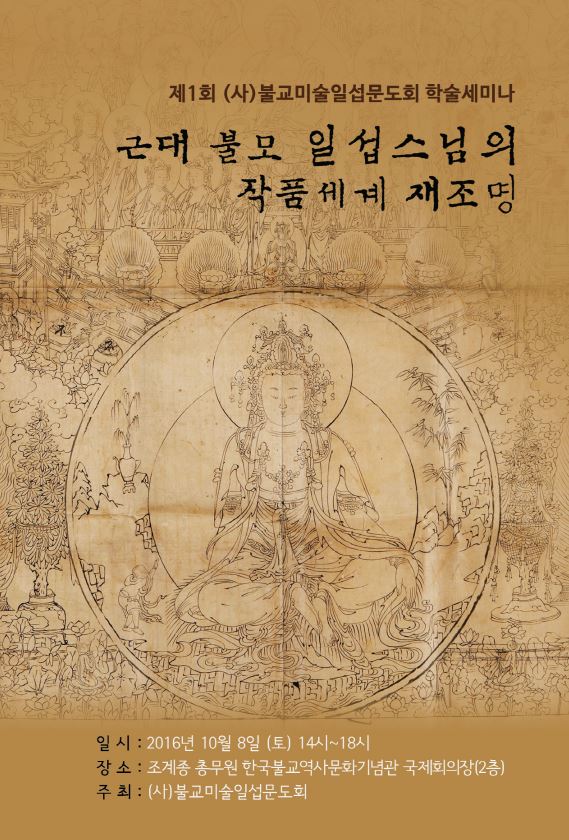 제1회 (사)불교미술일섭문도회 학술세미나
근대 불모 일섭스님의
작품세계 재조명
일 시 : 2016년 10월 8일 (토) 14시~18시
장 소 : 조계종 총무원 한국불교역사문화기념관 국제회의장(2층)
주 최 : (사)불교미술일섭문도회